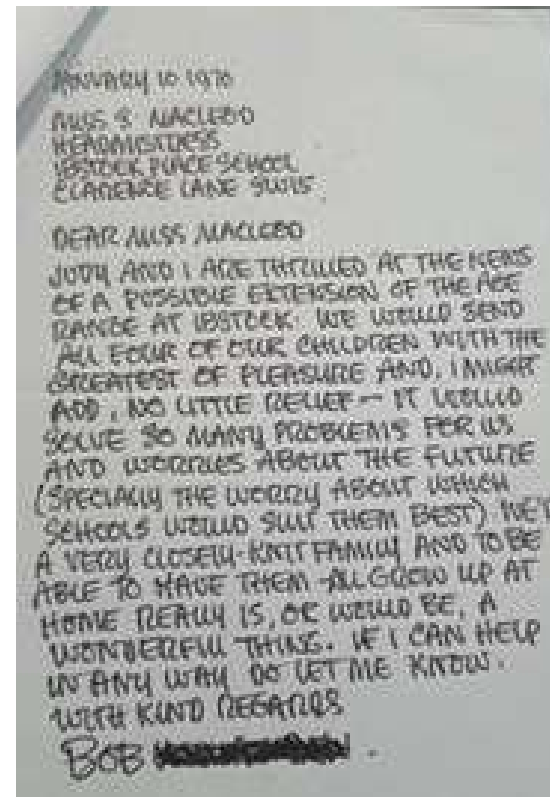 JANUARY 10 1970
MISS S MACLEOD
HEADMISTRESS
IBSTOCK PLACE SCHOOL
CLARENCE LANE SW15
DEAR MISS MACLEOD
JUDY AND I ARE THRILLED AT THE NEWS
OF A POSSIBLE EXTENSION OF THE AGE
RANGE AT IBSTOCK. WE WOULD SEND
ALL FOUR OF OUR CHILDREN WITH THE
GREATEST OF PLEASURE AND, I MIGHT
ADD, NO LITTLE RELIEF – IT WOULD
SOLVE SO MANY PROBLEMS FOR US
AND WORRIES ABOUT THE FUTURE
(SPECIALLY THE WORRY ABOUT WHICH
SCHOOLS WOULD SUIT THEM BEST) WE'
A VERY CLOSELY-KNIT FAMILY AND TO BE
ABLE TO HAVE THEM ALL GROW UP AT
HOME REALLY IS, OR WOULD BE, A
WONDERFUL THING. IF I CAN HELP
IN ANY WAY DO LET ME KNOW.
WITH KIND REGARDS
BOB